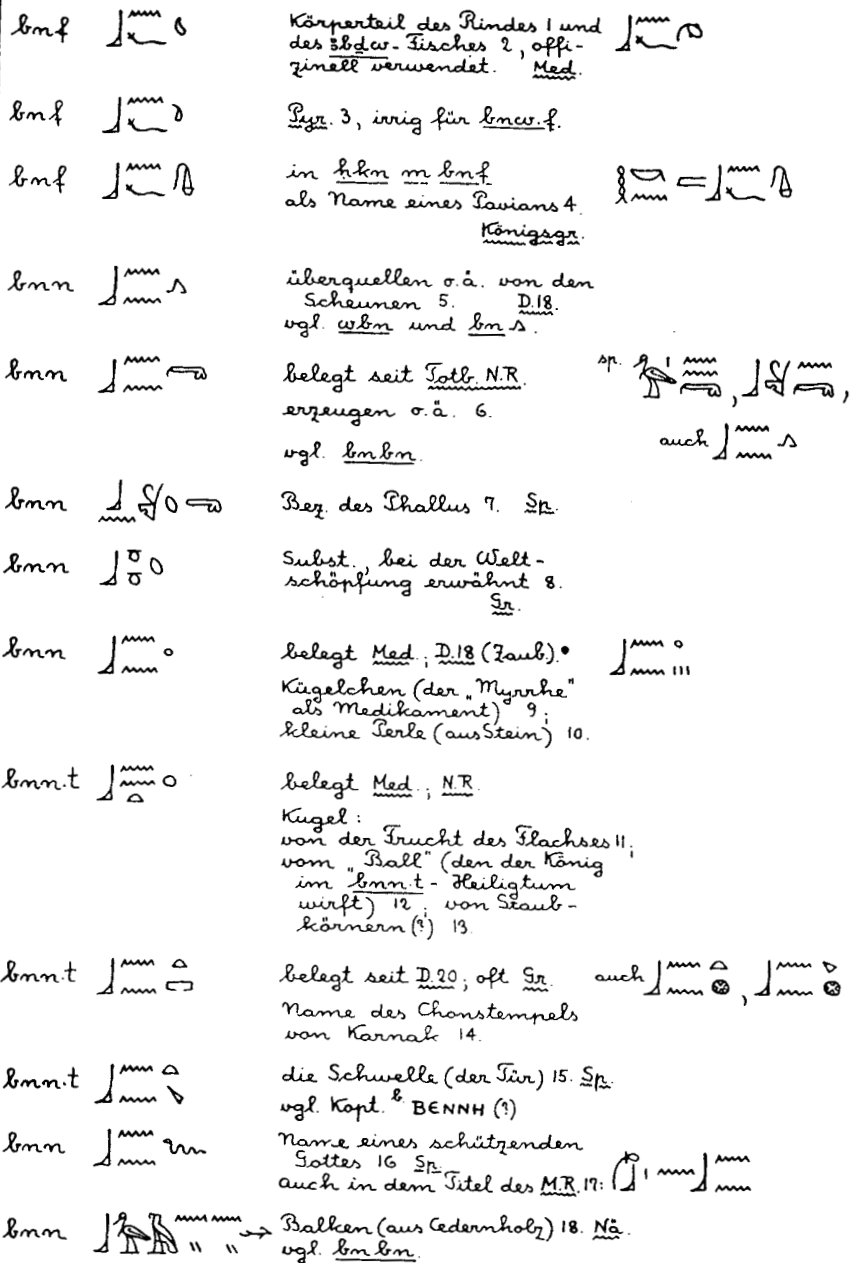 bnf 𓃀𓈖𓆑 Körperteil des Rindes 1 und
des ꜣbḏw-Fisches 2, offi-
zinell verwendet. Med.
bnf 𓃀𓈖𓆑 Pyr. 3, irrig für bnw.f.
bnf 𓃀𓈖𓆑 in ḥkn m bnf
als Name eines Pavians 4.
Königsgr.
bnn 𓃀𓈖𓈖𓂻 überquellen o.ä. von den
Scheunen 5. D.18.
vgl. wbn und bn 𓂻.
bnn 𓃀𓈖𓈖𓂺 belegt seit Totb. N.R.
sp.
erzeugen o.ä. 6.
auch 𓃀𓈖𓈖𓂻
vgl. bnbn.
bnn Bez. des Phallus 7. Sp.
bnn 𓃀𓏌𓏌𓆇 Subst., bei der Welt-
schöpfung erwähnt 8.
Gr.
bnn 𓃀𓈖𓈖 belegt Med.; D.18 (Zaub). 𓃀𓈖𓈖𓏥
Kügelchen (der „Myrrhe"
als Medikament) 9;
kleine Perle (aus Stein) 10.
bnn.t 𓃀𓈖𓈖𓏏 belegt Med.; N.R.
Kugel:
von der Frucht des Flachses 11;
vom „Ball" (den der König
im bnn.t-Heiligtum
wirft) 12; von Staub-
körnern (?) 13.
bnn.t 𓃀𓈖𓈖𓏏𓉐 belegt seit D.20; oft Gr. auch 𓃀𓈖𓈖𓏏𓊖, 𓃀𓈖𓈖𓊖
Name des Chonstempels
von Karnak 14.
bnn.t 𓃀𓈖𓈖𓏏 die Schwelle (der Tür) 15. Sp.
vgl. Kopt. ᵇ ⲂⲈⲚⲚⲎ (?)
bnn 𓃀𓈖𓈖𓆙 Name eines schützenden
Gottes 16 Sp.
auch in dem Titel des M.R. 17:
bnn Balken (aus Cedernholz) 18. Nä.
vgl. bnbn.